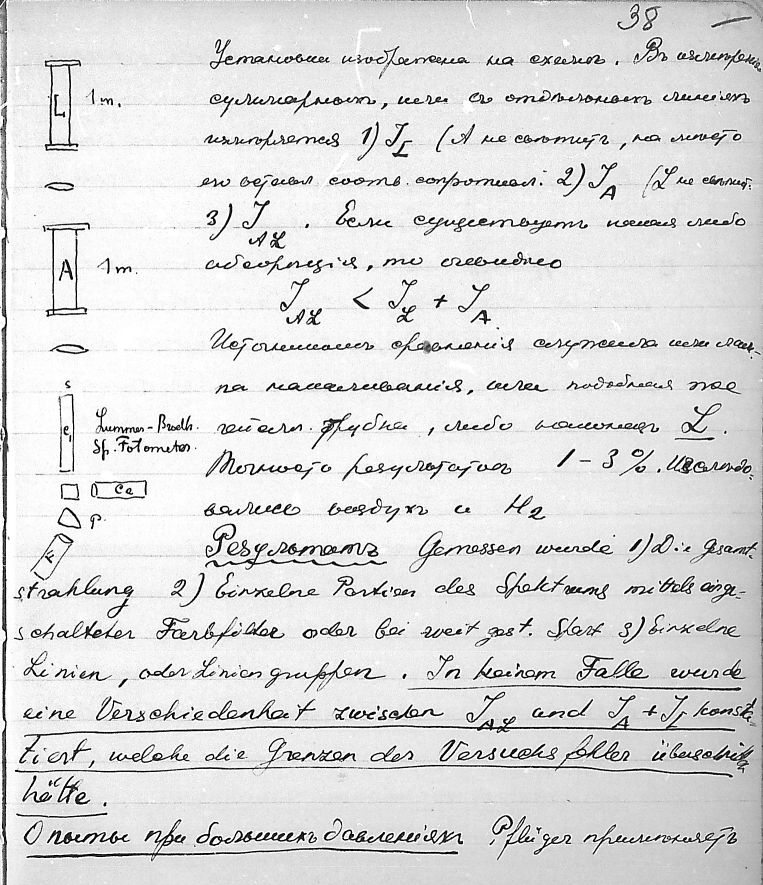 38 —
Установка изображена на схемѣ. Въ измѣренiи
L 1 m.
суммарномъ, или съ отдѣльныхъ линiяхъ
измѣряется 1) J_L (A не свѣтитъ, на мѣсто
его вставл. соотв. сопротивл. 2) J_A (L не свѣтит.
3) J_AL. Если существуетъ какая либо
A 1 m.
абсорпцiя, то очевидно
J_AL < J_L + J_A
Источникомъ сравненiя служила или лам-
па накаливанiя, или подобная же
S
гейсл. трубка, либо
L.
Lummer-Brodh.
Sp. Fotometer.
e,
Точность результатовъ 1 – 3 %. Изслѣдо-
вались воздухъ и H2
Ce
P.
F
Результатъ Gemessen wurde 1) Die Gesamt-
strahlung 2) Einzelne Partien des Spektrums mittels einge-
schalteter Farbfilter oder bei weit gest. Spalt 3) Einzelne
Linien, oder Liniengruppen. In keinem Falle wurde
eine Verschiedenheit zwischen J_AL und J_A + J_L konsta-
tiert, welche die Grenzen der Versuchsfehler überschritten
hätte.
Опыты при большихъ давленiяхъ Pflüger примѣняетъ